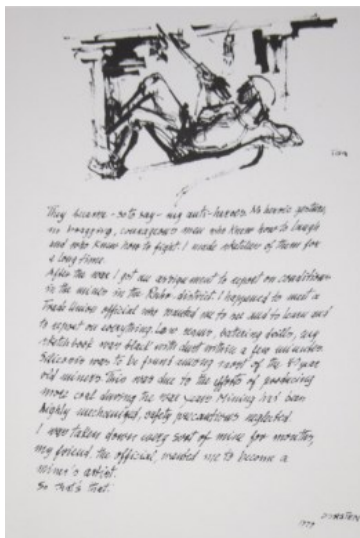 They became - so to say - my anti-heroes. No heroic gestures,
no bragging, courageous men who knew how to laugh
and who knew how to fight. I made sketches of them for
a long time.
After the war I got an assignment to report on conditions
in the mines in the Ruhr-district. I happened to meet a
Trade Union official who wanted me to see and to learn and
to report on everything. Low seams, battering drills, my
sketchbook was black with dust within a few minutes.
Silicosis was to be found among most of the 40 year
old miners. This was due to the efforts of producing
more coal during the war years. Mining had been
highly mechanized, safety precautions neglected.
I was taken down every sort of mine for months,
my friend, the official, wanted me to become a
miner's artist.
So that's that.